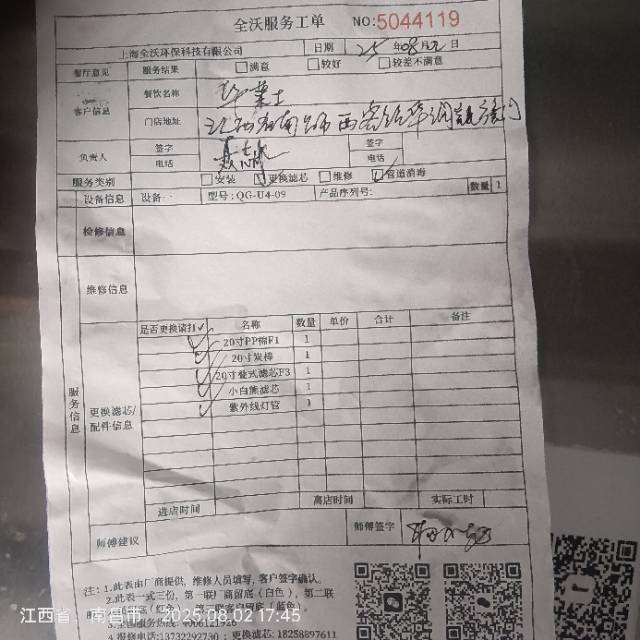 全沃服务工单 NO:5044119
上海全沃环保科技有限公司 日期 25 年 08 月 02 日
餐厅意见 服务结果 满意 较好 较差不满意
客户信息 餐饮名称 华莱士
门店地址 江西省南昌市
负责人 签字 签字
电话 电话
服务类别 安装 更换滤芯 维修 管道消毒
设备信息 设备: 型号:QG-U4-09 产品序列号: 数量 1
检修信息
维修信息
服务信息
更换滤芯/配件信息
是否更换请打✓ 名称 数量 单价 合计 备注
✓ 20寸PP棉F1 1
✓ 20寸炭棒 1
✓ 20寸叠式滤芯F3 1
✓ 小白熊滤芯 1
✓ 紫外线灯管 1
进店时间 离店时间 实际工时
师傅建议 师傅签字
注:1.此表由厂商提供,维修人员填写,客户签字确认。
2.此表一式三份,第一联厂商留底(白色),第二联
4.报修电话:13732292730;更换滤芯:18258897611
江西省 南昌市 2025.08.02 17:45